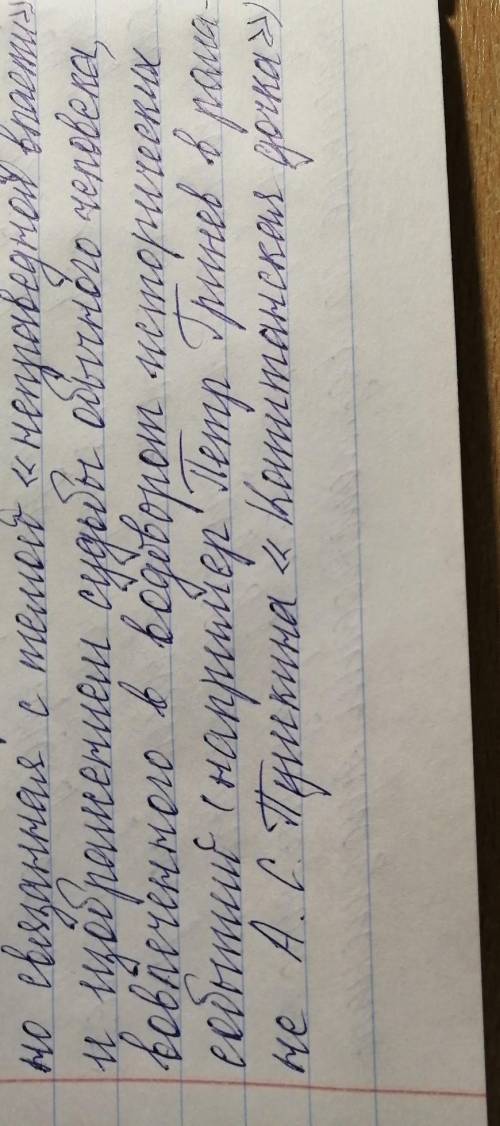 но связанная с темой «неправедной власти»
и изображением судьбы обычного человека,
вовлеченного в водоворот исторических
событий (например Петр Гринев в рома-
не А. С. Пушкина «Капитанская дочка»)